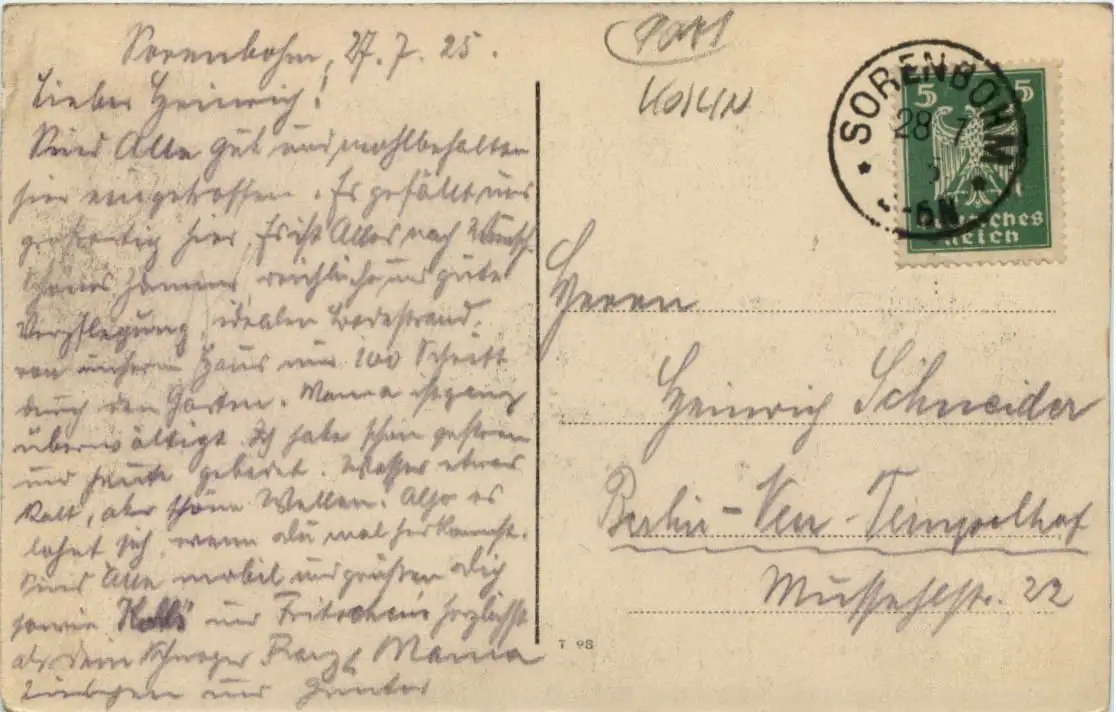 Sorenbohm, 27.7.25.
Lieber Heinrich!
Sind Alle gut und wohlbehalten
hier eingetroffen. Es gefällt uns
großartig hier. Es ist Alles nach Wunsch.
Schönes Zimmer reichliche und gute
Verpflegung, idealen Badestrand,
von unserm Haus nur 100 Schritt
durch den Garten. Mama ist ganz
überwältigt. Ich habe schon gestern
und heute gebadet. Wasser etwas
kalt, aber schöne Wellen. Also es
lohnt sich, wenn Du mal herkommst.
Sind Alle mobil und grüßen Dich
sowie und Fritzchen herzlichst
als Dein Schwager Franz, Mama
und Günter
KÖSLIN
SORENBOHM
28 7
-6N
5 5
Deutsches
Reich
Herrn
Heinrich Schneider
Berlin-Neu-Tempelhof
Mussehlstr. 22
T 98